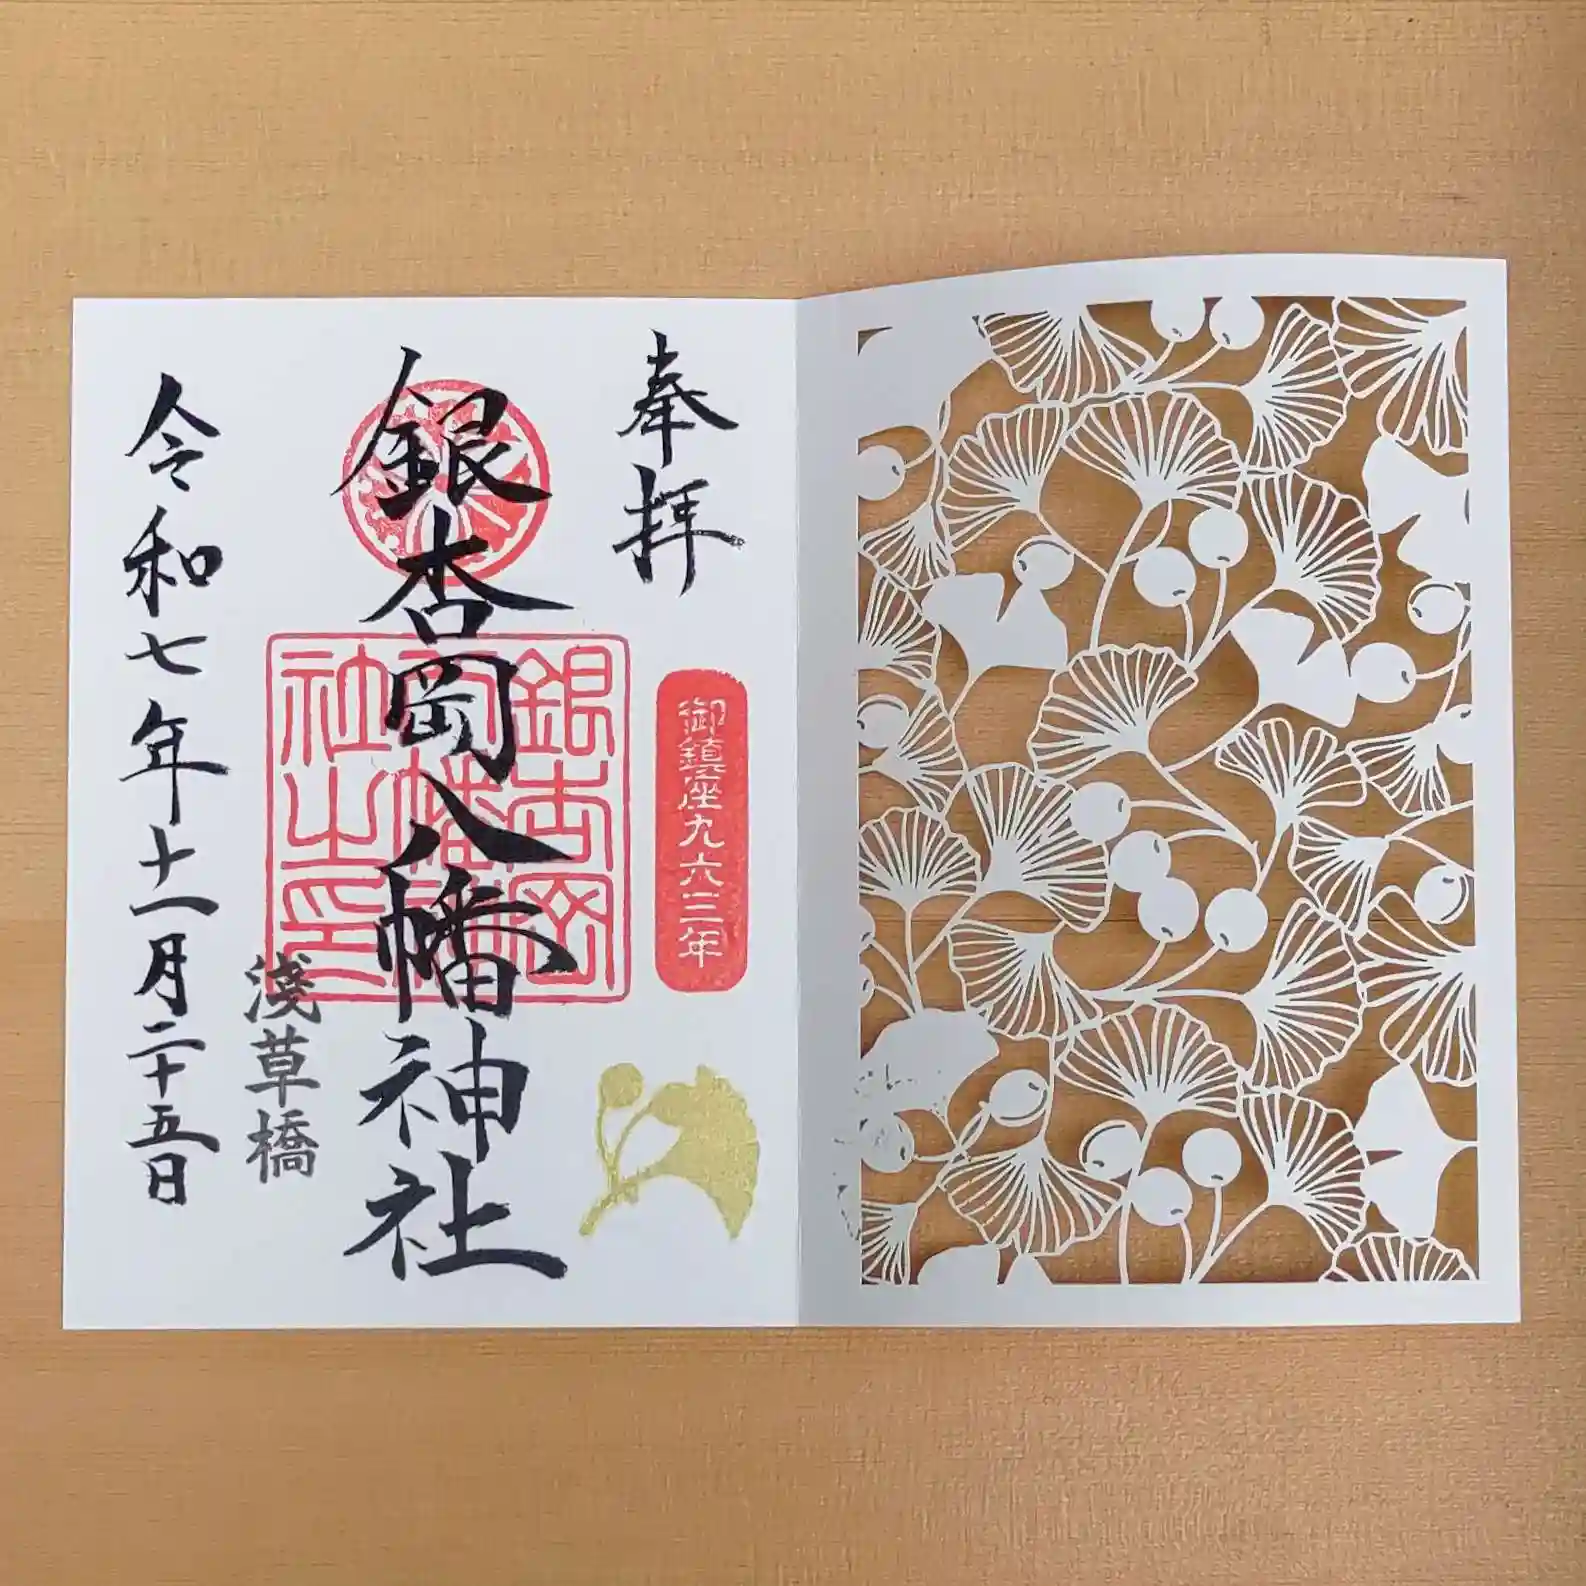 奉拝
御鎮座九六三年
銀杏岡八幡神社
銀杏岡
八幡神
社之印
淺草橋
令和七年十一月二十五日